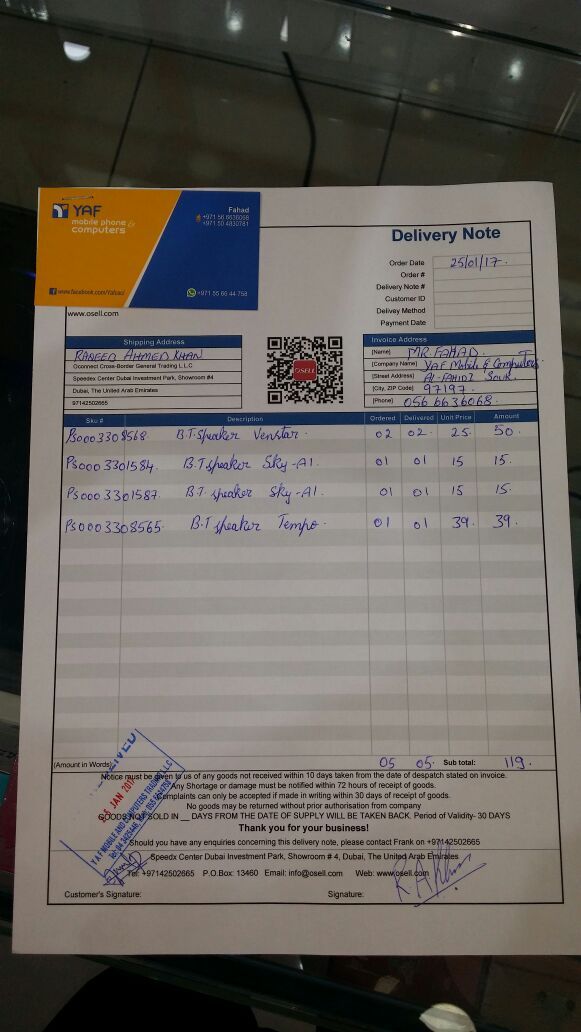 YAF
mobile phone &
computers
Fahad
+971 56 6636068
+971 50 4830781
www.facebook.com/Yafiao/
+971 55 66 44 758
www.osell.com
Delivery Note
Order Date 25/01/17.
Order #
Delivery Note #
Customer ID
Delivey Method
Payment Date
Shipping Address
RAAFED AHMED KHAN
Oconnect Cross-Border General Trading L.L.C
Speedex Center Dubai Investment Park, Showroom #4
Dubai, The United Arab Emirates
97142502665
OSELL
Invoice Address
[Name] MR. FAHAD.
[Company Name] YAF Mobile & Computers
[Street Address] AL-FAHIDI Souk.
[City, ZIP Code] 97197.
[Phone] 056 6636068.
Sku # Description Ordered Delivered Unit Price Amount
PS0003308568 B.T. Speaker Venstar. 02 02. 25. 50.
PS0003301584. B.T. Speaker Sky-A1. 01 01 15 15.
PS0003301587. B.T. Speaker Sky-A1 01 01 15 15.
PS0003308565. B.T Speaker Tempo. 01 01 39. 39.
(Amount in Words) 05 05. Sub total: 119.
Notice must be given to us of any goods not received within 10 days taken from the date of despatch stated on invoice.
Any Shortage or damage must be notified within 72 hours of receipt of goods.
Complaints can only be accepted if made in writing within 30 days of receipt of goods.
No goods may be returned without prior authorisation from company
GOODS NOT SOLD IN __ DAYS FROM THE DATE OF SUPPLY WILL BE TAKEN BACK. Period of Validity- 30 DAYS
Thank you for your business!
Should you have any enquiries concerning this delivery note, please contact Frank on +97142502665
Speedx Center Dubai Investment Park, Showroom # 4, Dubai, The United Arab Emirates
Tel: +97142502665 P.O.Box: 13460 Email: info@osell.com Web: www.osell.com
JAN 2017
YAF MOBILE AND COMPUTERS TRADING LLC
Customer's Signature: Signature: